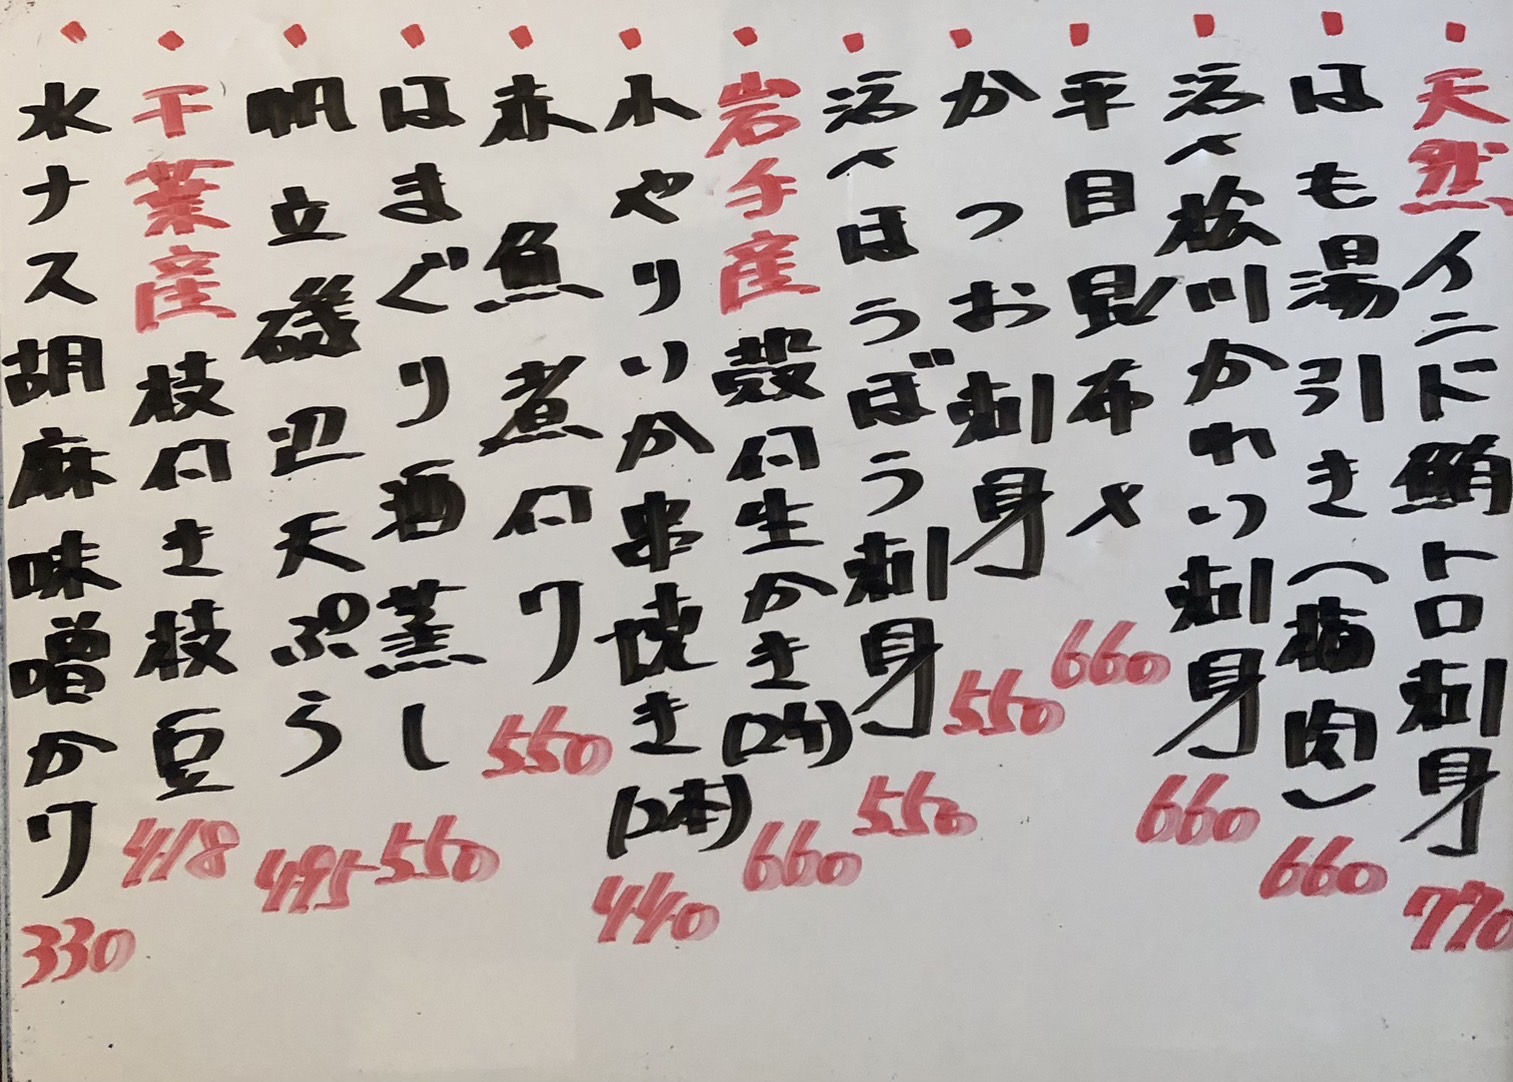 天然インド鮪トロ刺身 770
はも湯引き(梅肉) 660
活〆松川かれい刺身 660
平目昆布〆 660
かつお刺身 550
活〆ほうぼう刺身 550
岩手産殻付生かき(2ケ) 660
小やりいか串焼き(2本) 440
赤魚煮付け 550
はまぐり酒蒸し 550
帆立磯辺天ぷら 495
千葉産枝付き枝豆 418
水ナス胡麻味噌かけ 330